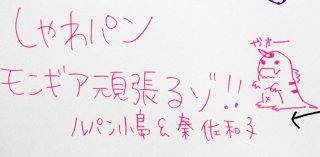 しゃわパン
やおー
モンギア頑張るゾ!!
ルパン小島&秦佐和子